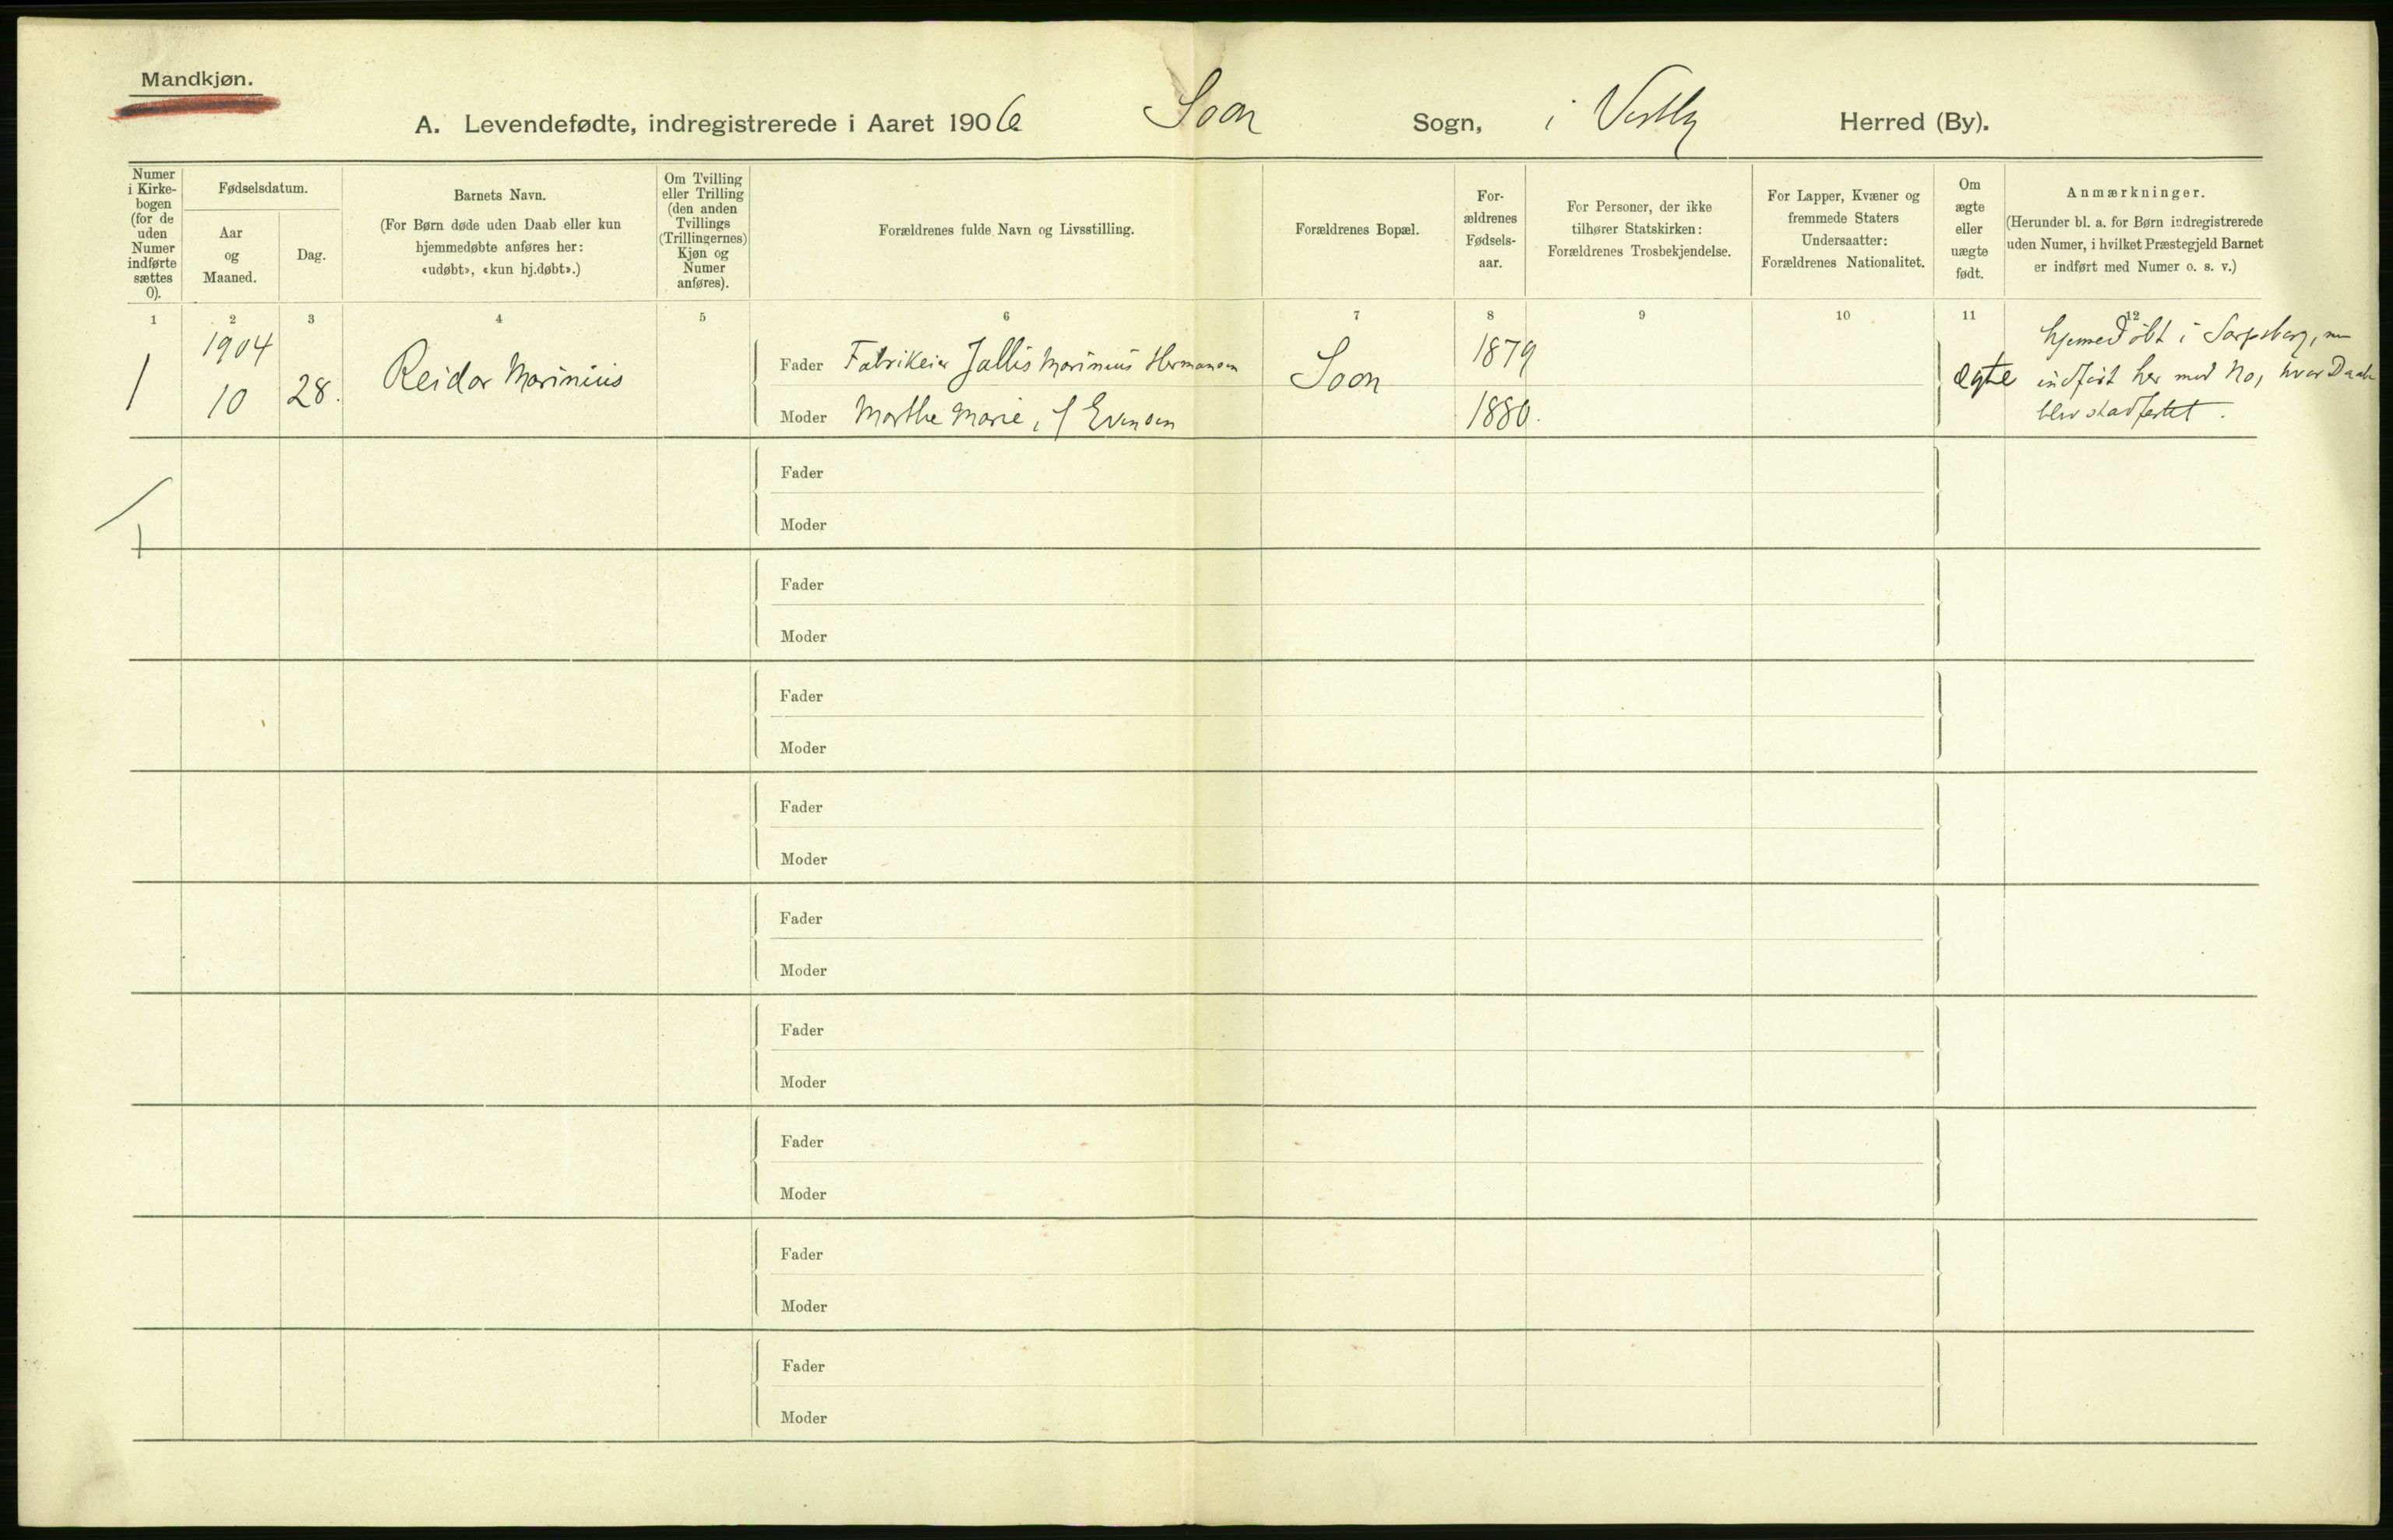 Mandkjøn.
A. Levendefødte, indregistrerede i Aaret 1906 Soon Sogn, i Vestby Herred (By).
Numer
i Kirke-
bogen
(for de
uden
Numer
indførte
sættes
0).
Fødselsdatum.
Aar
og
Maaned.
Dag.
Barnets Navn.
(For Børn døde uden Daab eller kun
hjemmedøbte anføres her:
«udøbt», «kun hj.døbt».)
Om Tvilling
eller Trilling
(den anden
Tvillings
(Trillingernes)
Kjøn og
Numer
anføres).
Forældrenes fulde Navn og Livsstilling.
Forældrenes Bopæl.
For-
ældrenes
Fødsels-
aar.
For Personer, der ikke
tilhører Statskirken:
Forældrenes Trosbekjendelse.
For Lapper, Kvæner og
fremmede Staters
Undersaatter:
Forældrenes Nationalitet.
Om
ægte
eller
uægte
født.
Anmærkninger.
(Herunder bl. a. for Børn indregistrerede
uden Numer, i hvilket Præstegjeld Barnet
er indført med Numer o. s. v.)
1 2 3 4 5 6 7 8 9 10 11 12
1
1904
10
28.
Reidar Marinius
Fader Fabrikeier Marinius Hermansen
Moder Marthe Marie, f Evensen
Soon
1879
1880.
ægte
hjemedøbt i Sarpsborg,
indført her med No, hvor Daab
blev stadfestet.
Fader
Moder
1
Fader
Moder
Fader
Moder
Fader
Moder
Fader
Moder
Fader
Moder
Fader
Moder
Fader
Moder
Fader
Moder